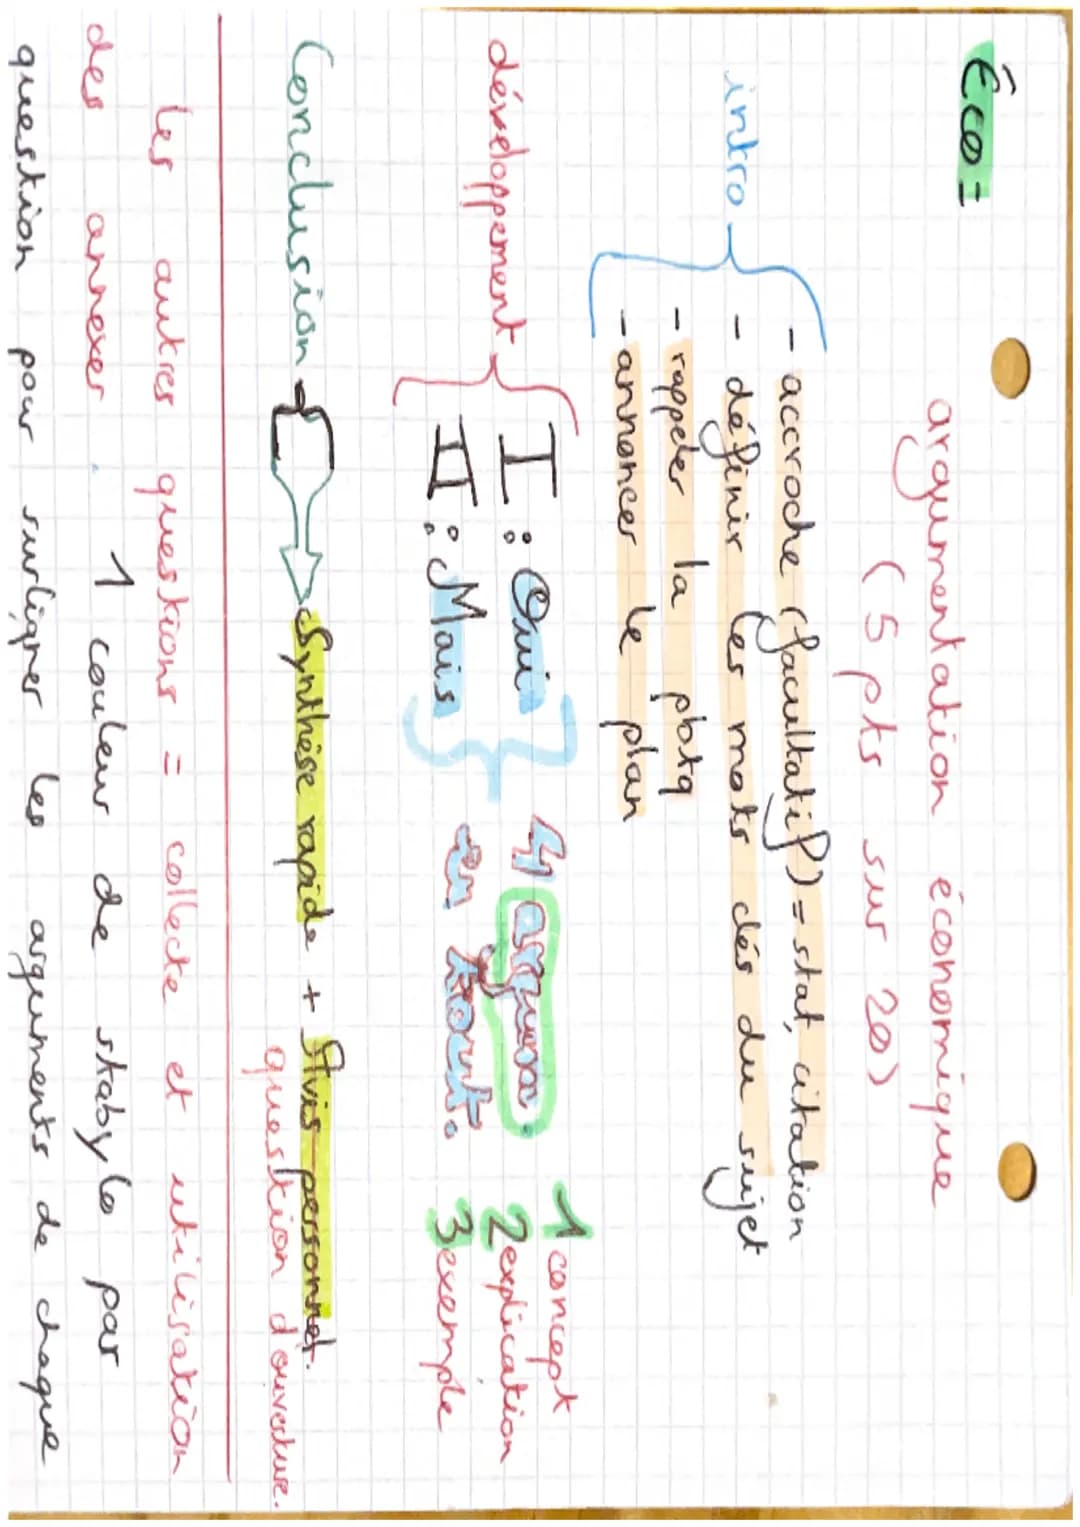 Éco =
argumentation économique
(5 pts sur 20)
intro
- accroche (facultatif) = stat, citation
- définir les mots clés du sujet
- rappeler la pbtq
- annoncer le plan
développement
I : Oui
II : Mais
4 argum.
en tout.
1 concept
2 explication
3 exemple
Conclusion
Synthèse rapide + Avis personnel.
question d'ouverture.
les autres questions = collecte et utilisation
des annexes. 1 couleur de stabylo par
question pour surligner les arguments de chaque